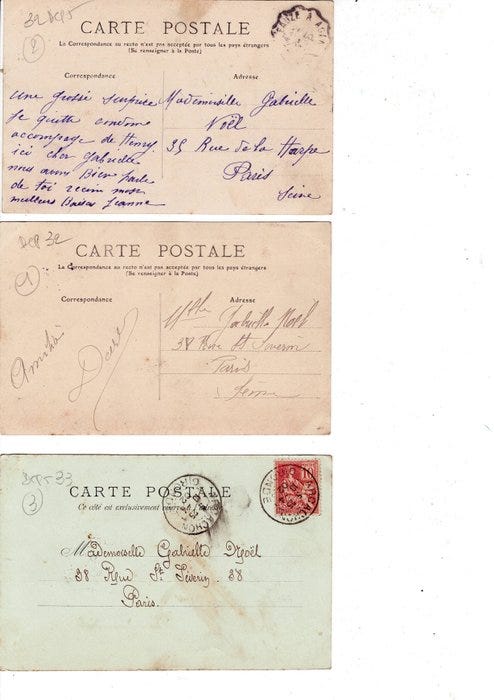 32 Dep 5
2
CARTE POSTALE
La Correspondance au recto n'est pas acceptée par tous les pays étrangers
(Se renseigner à la Poste)
Correspondance
Adresse
une grosse surprise
Je quitte
accompagné de Henry
ici cher Gabrielle
nous avons Bien parlé
de toi recois mes
meilleurs Baisers Jeanne
Mademoiselle Gabrielle
Noël
35 Rue de la Harpe
Paris
Seine
Dep 32
1
CARTE POSTALE
La Correspondance au recto n'est pas acceptée par tous les pays étrangers
(Se renseigner à la Poste)
Correspondance
Adresse
Amitié
Mlle Gabrielle Noël
38 Rue St Severin
Paris
Dep 33
3
CARTE POSTALE
Ce côté est exclusivement réservé à l'adresse
ARCACHON
10
ARCACHON
Mademoiselle Gabrielle Noël
38 Rue St Séverin 38
Paris.